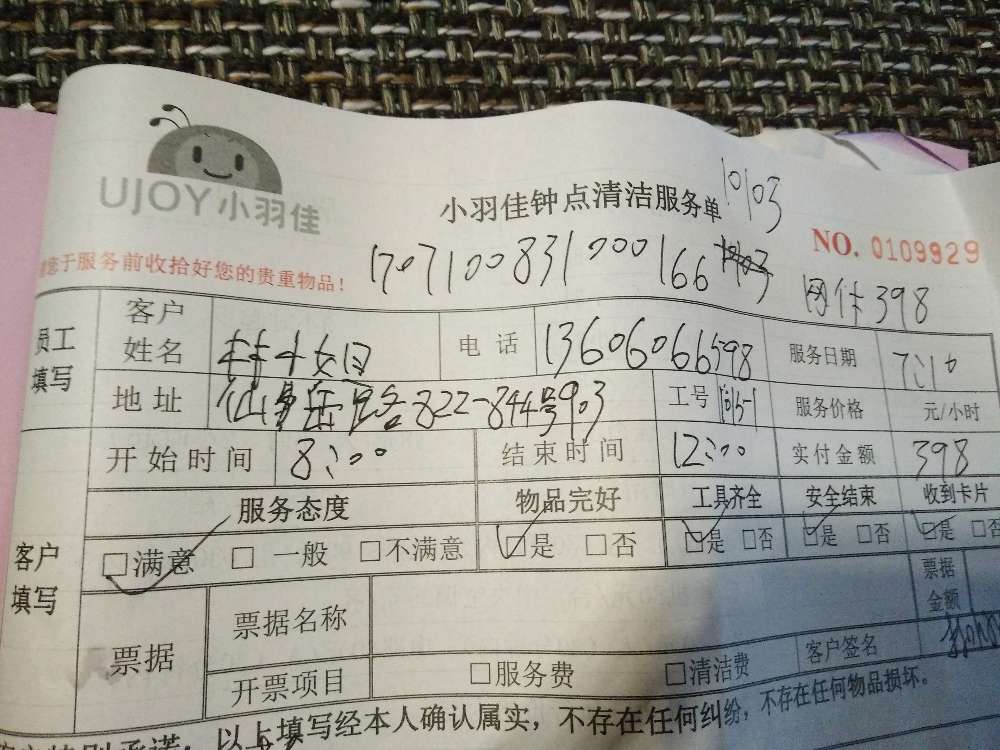 UJOY小羽佳
小羽佳钟点清洁服务单 10103
NO. 0109929
您于服务前收拾好您的贵重物品！
1707100831000166
398
员工填写
客户姓名
电话 13606066598
服务日期 7:10
地址 仙岳 822-844号903
工号
服务价格 元/小时
开始时间 8:00
结束时间 12:00
实付金额 398
客户填写
服务态度 物品完好 工具齐全 安全结束 收到卡片
□满意 □一般 □不满意 □是 □否 □是 □否 □是 □否 □是 □否
票据
票据名称
票据金额
开票项目 □服务费 □清洁费
客户签名
承诺：以上填写经本人确认属实，不存在任何纠纷，不存在任何物品损坏。